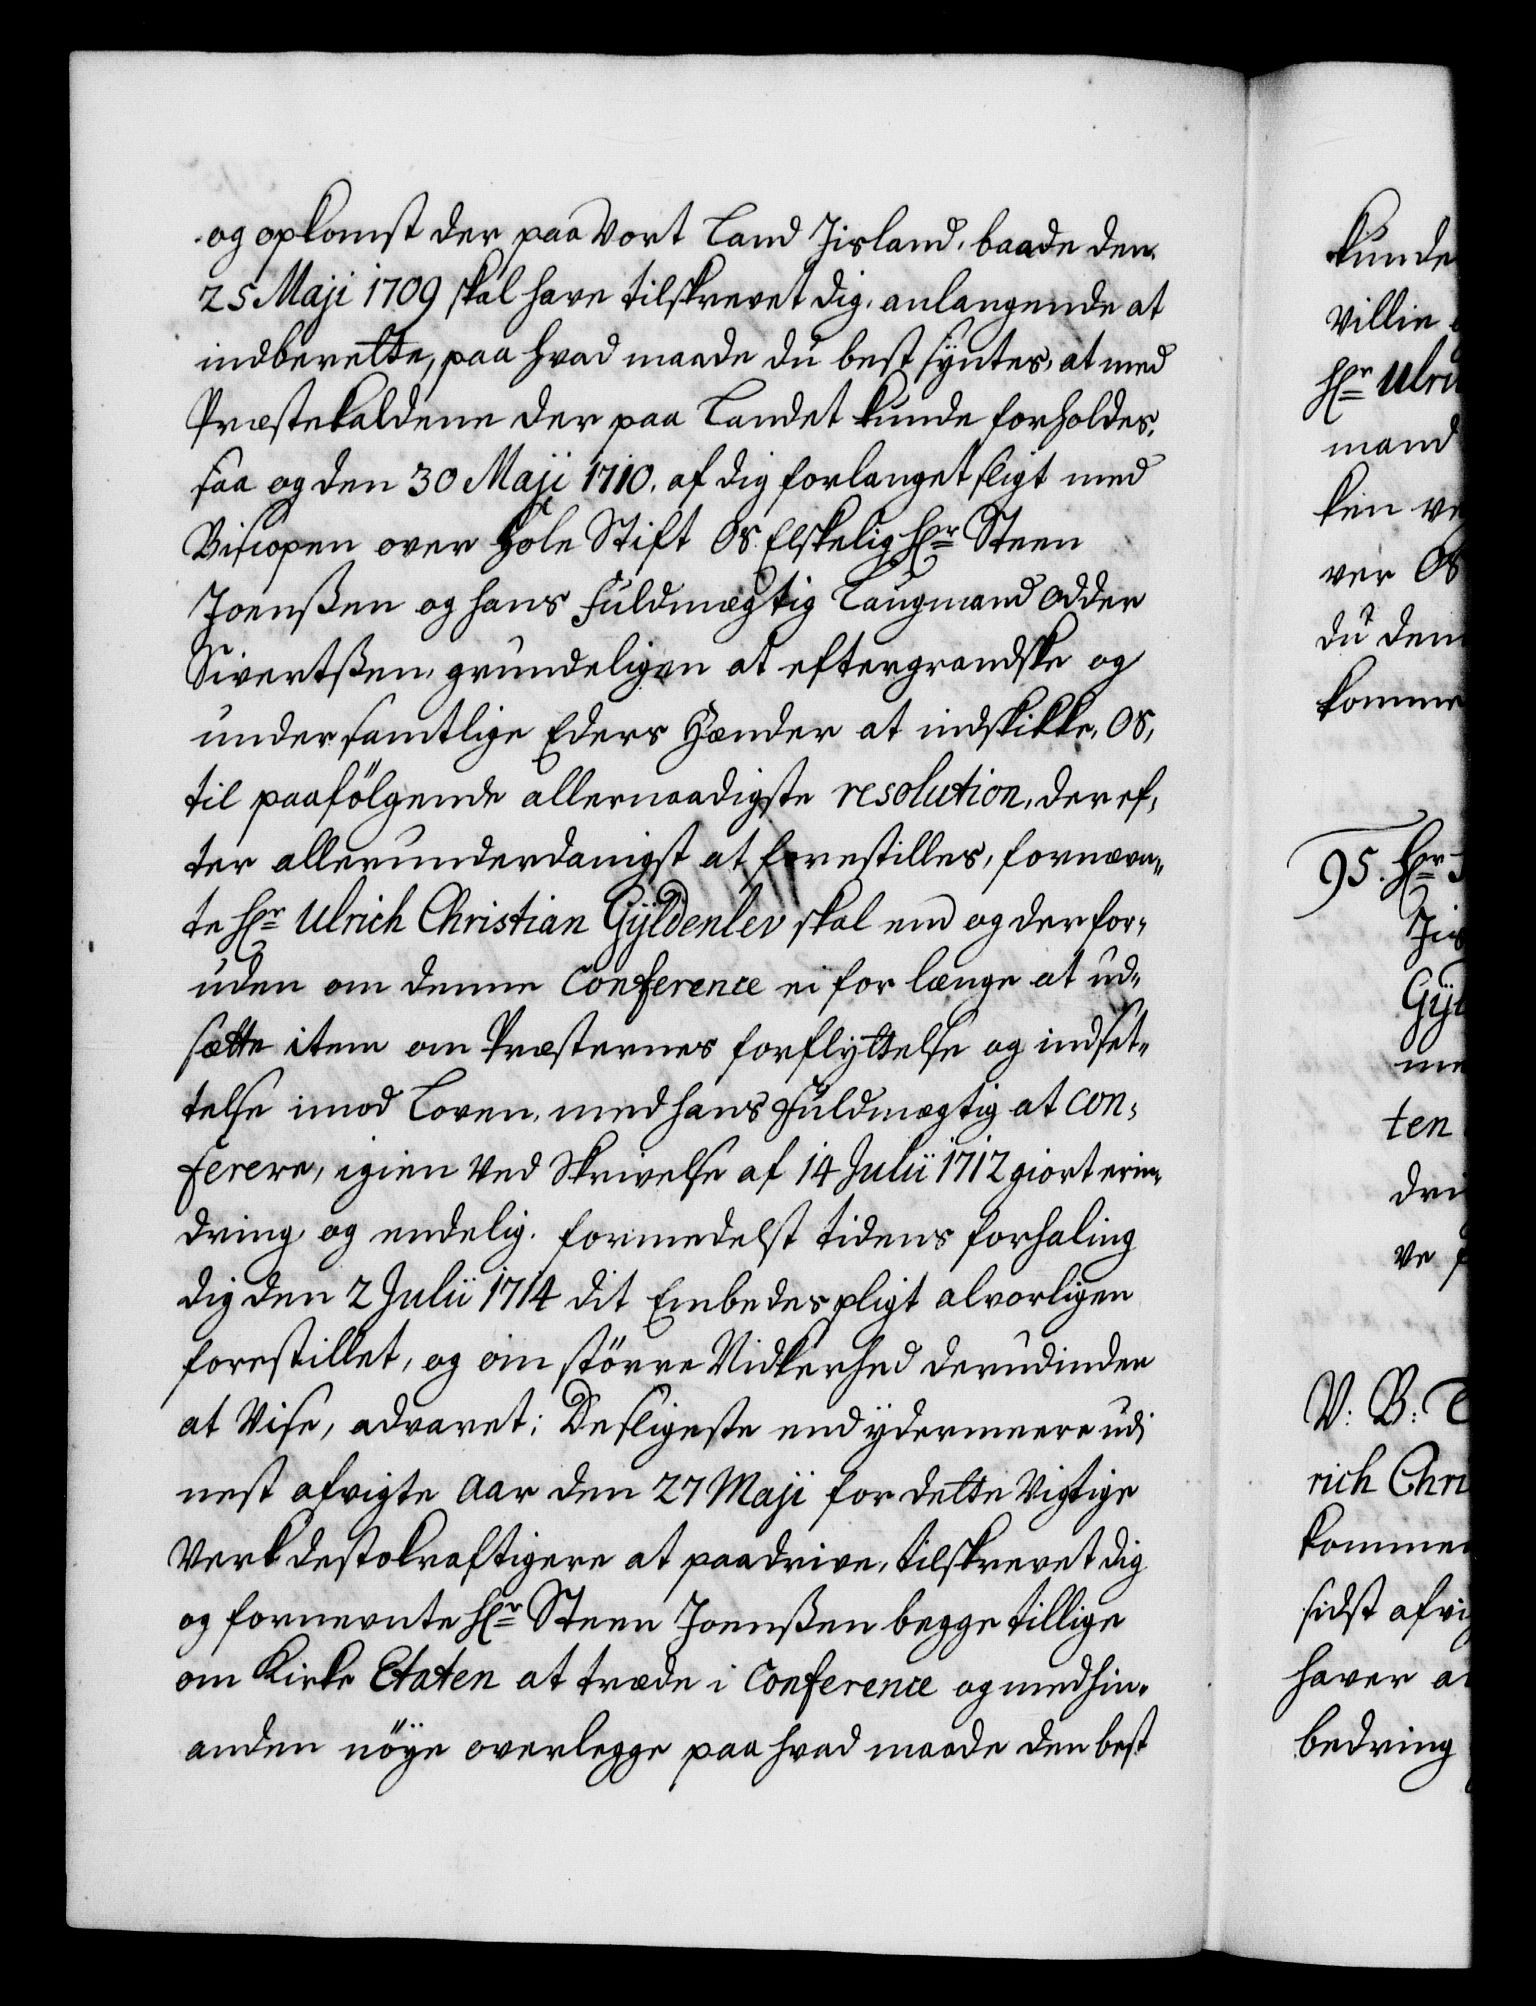 og opkomst der paa Vort Land Jisland, baade den
25 Maji 1709 skal have tilskrevet dig, anlangende at
indberette, paa hvad maade du best syntes, at med
Præstekaldene der paa Landet kunde forholdes,
saa og den 30 Maji 1710. af dig forlanget sligt med
Biscopen over Hole Stift Os Elskelig Hr Steen
Joenßen og hans Fuldmægtig Laugmand Odder
Sivertßen, grundeligen at eftergrandske og
under samtlige Eders Hænder at indskikke, Os,
til paafölgende allernaadigste resolution, deref,
ter allerunderdanigst at forestilles, fornævn,,
te Hr Ulrich Christian Gÿldenlev skal end og derfor,
uden om denne Conference ei for længe at ud,,
sætte item om Præsternes forflyttelse og indset,,
telse imod Loven, med hans Fuldmægtig at con,
ferere, igien Ved Skrivelse af 14 Julii 1712 giort erin,,
dring, og endelig formedelst tidens forhaling
dig den 2 Julii 1714 dit Embedes pligt alvorligen
forestillet, og om större Vidkerhed derudinden
at Vise, advaret; Desligeste end ÿdermeere udi
nest afvigte Aar den 27 Maji for dette Vigtige
Verk desto kraftigere at paadrive, tilskrevet dig
og fornevnte Hr Steen Joenßen begge tillige
om Kirke Etaten at træde i Conference og med hin,
anden nöÿe overlegge paa hvad maade den best
kunde
Villie
Hr Ulri
mand
ken ve
ver Os
du dem
komme
95. Hr
Jis
Gÿl
me
ten
dri
ve
V: B:
rich Chri
kommen
sidst afvi
haver a
bedring